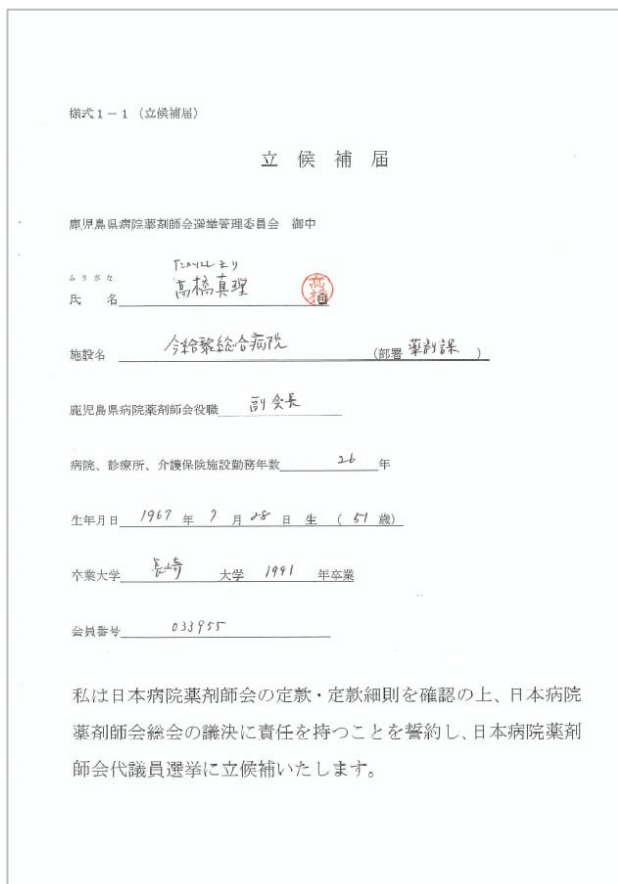 様式1-1(立候補届)
立候補届
鹿児島県病院薬剤師会選挙管理委員会 御中
たかはし まり
ふりがな
氏 名 高橋真理
施設名 今給黎総合病院 (部署 薬剤課 )
鹿児島県病院薬剤師会役職 副会長
病院、診療所、介護保険施設勤務年数 26 年
生年月日 1967 年 7 月 28 日 生 ( 51 歳)
卒業大学 長崎 大学 1991 年卒業
会員番号 033955
私は日本病院薬剤師会の定款・定款細則を確認の上、日本病院
薬剤師会総会の議決に責任を持つことを誓約し、日本病院薬剤
師会代議員選挙に立候補いたします。